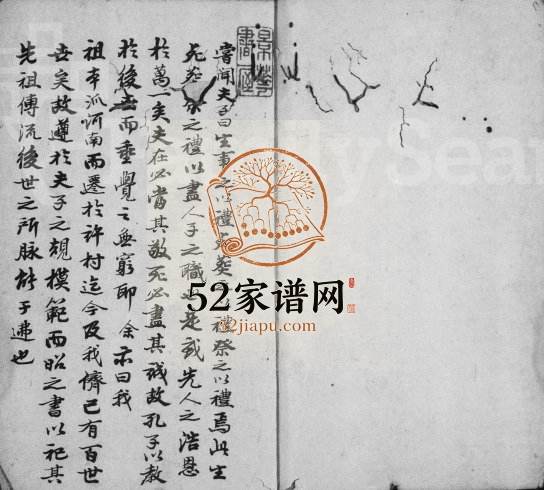 嘗聞夫子曰生事之以禮死葬之以禮祭之以禮焉此生
死祭之禮以盡人子之職也是或先人之浩恩
於萬一矣夫在必當其敬死必盡其誠故孔子以教
於後世而垂覺之無窮即余亦曰我
祖本派河南而遷於許村迄今及我儕已有百世
世矣故遵於夫子之規模範而昭之書以祀其
先祖傳流後世之所脉
于
也
52家谱网
52jiapu.com